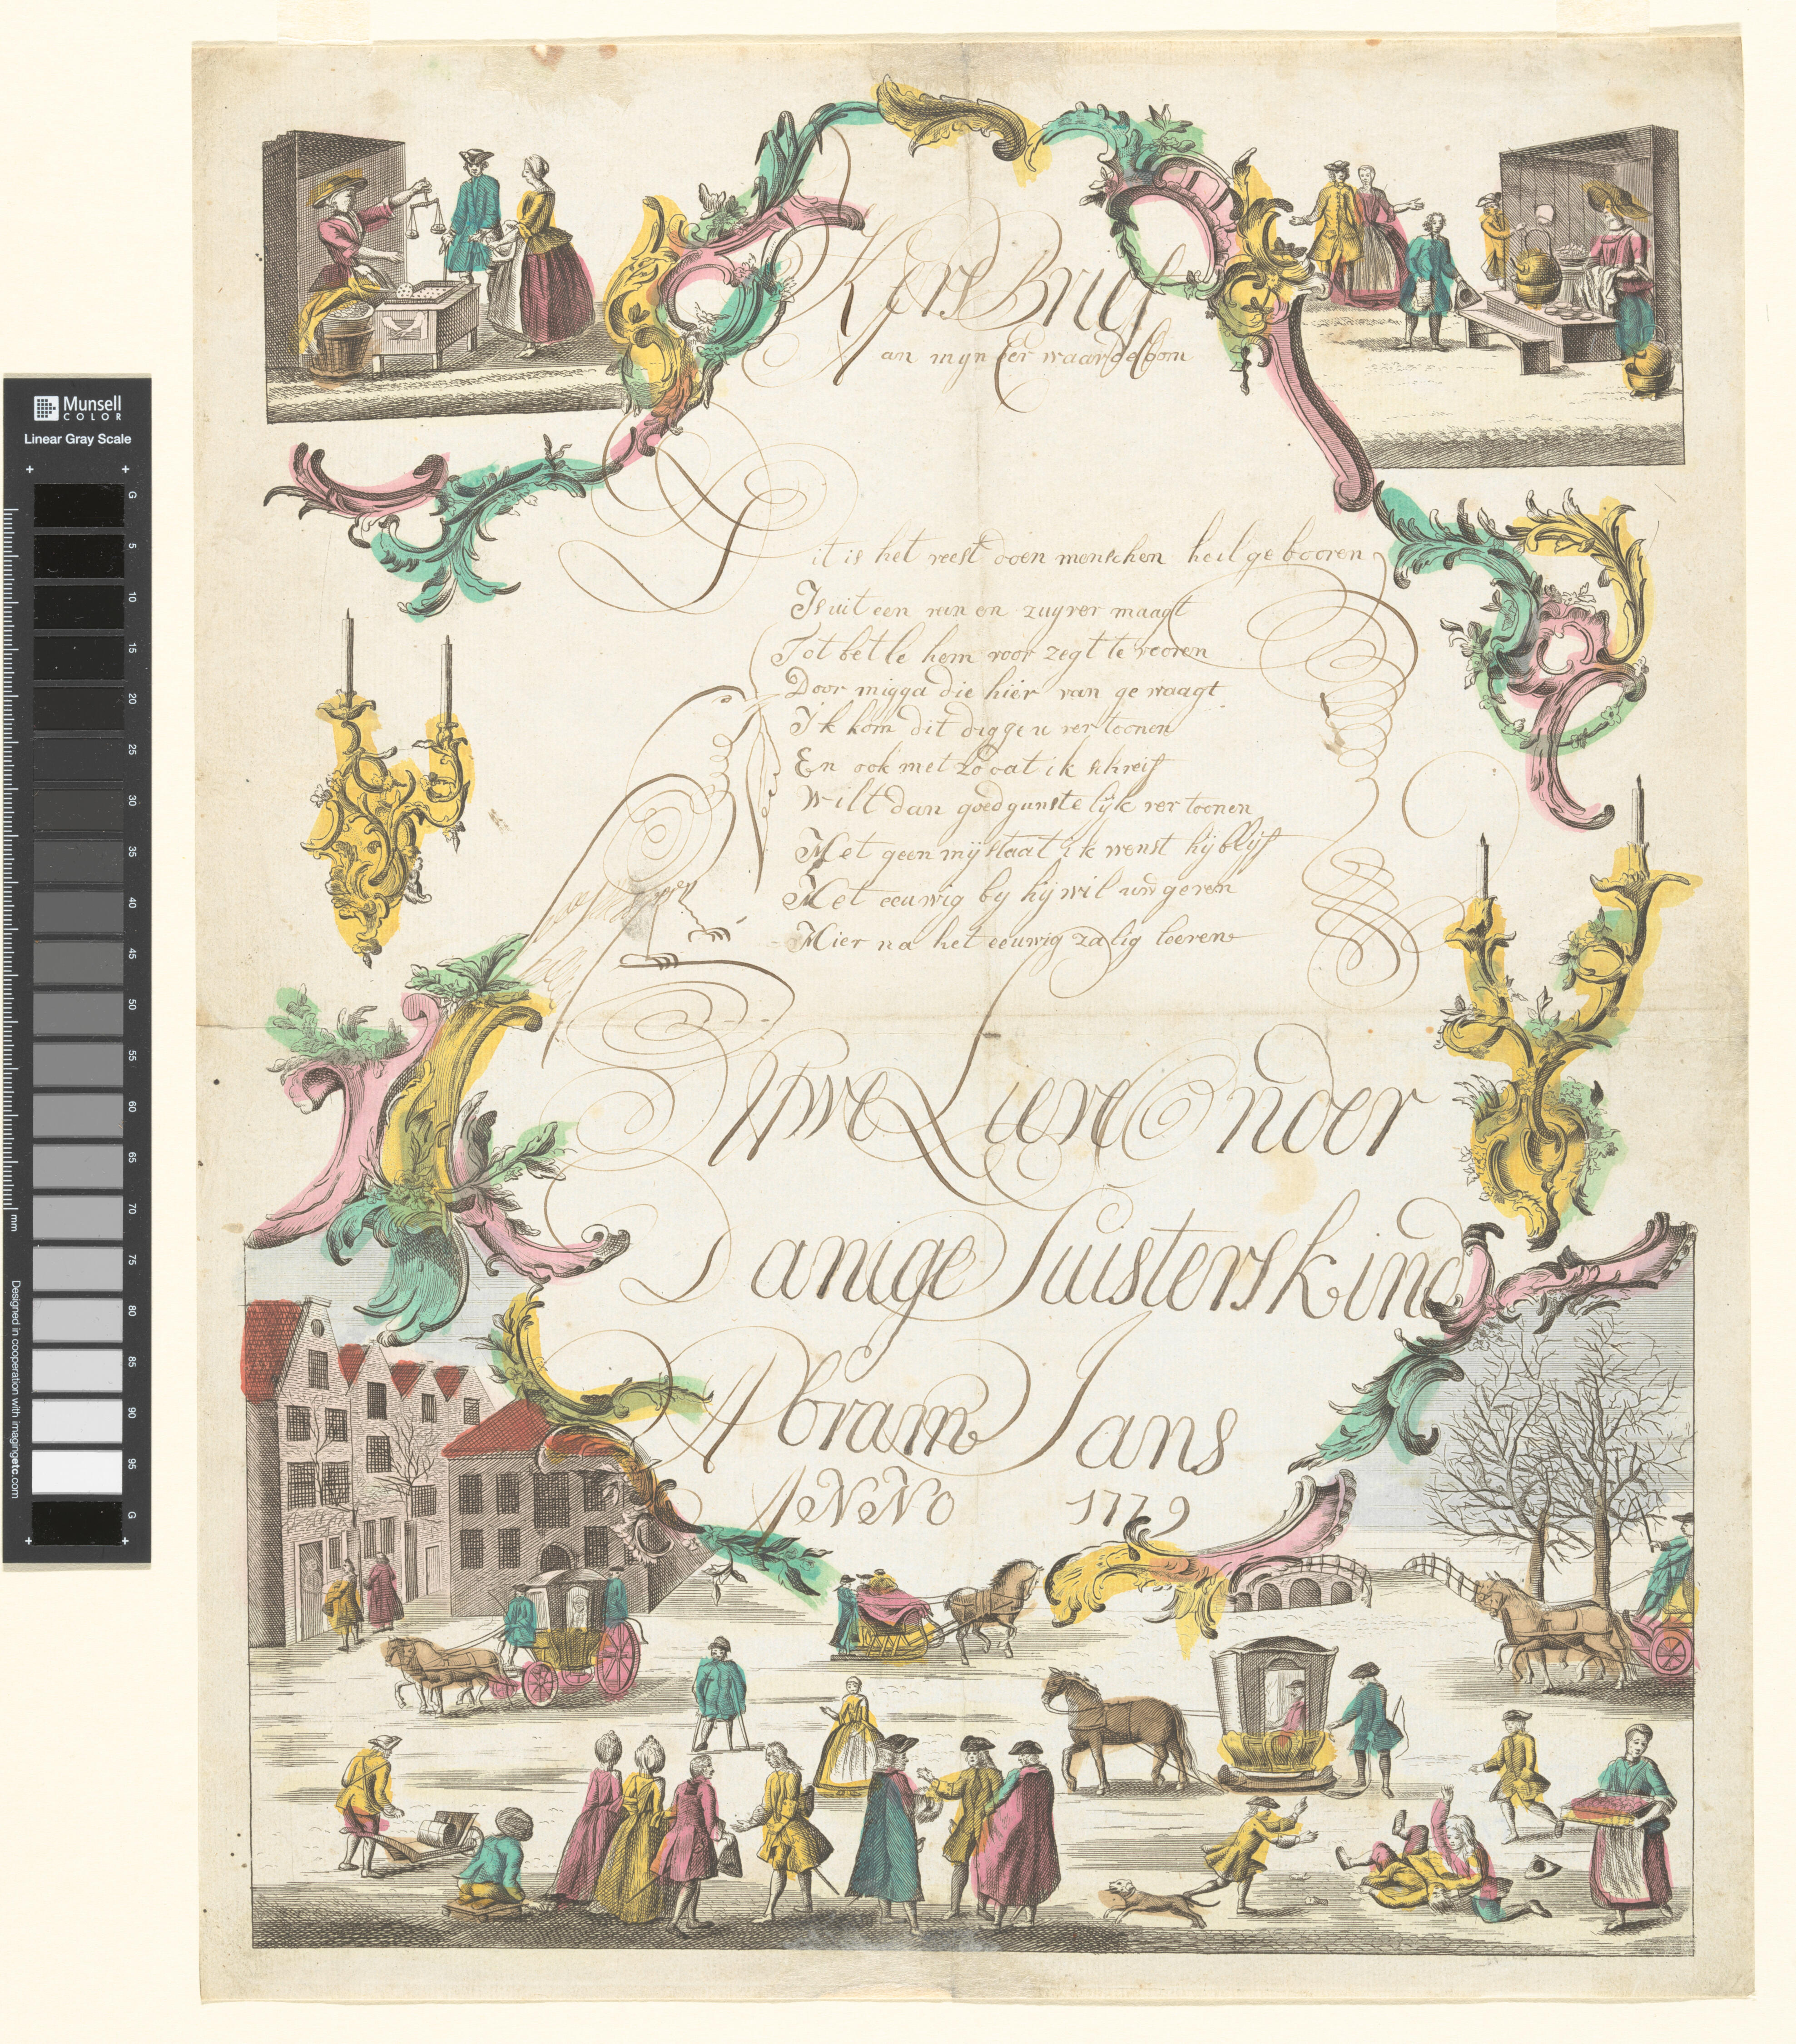 Kers Brief
Aan mijn Eer waarde oom
Dit is het veest doen menschen heil gebooren
Is uit een rein en zuyver maagt
Tot betle hem voor zegt te vooren
Door migga die hier van ge waagt
Ik kom dit digge u ver toonen
En ook met zo dat ik schreif
Wilt dan goed gunste lijk ver toonen
Met geen mij staat ik wenst hij blijf
Met eeuwig by hij wil uw geven
Hier na het eeuwig zalig leeven
Uwe Lieve Onder
Danige Suisters kind
Abram Jans
ANNO 1779
Munsell
COLOR
Linear Gray Scale
G
5
10
15
20
25
30
35
40
45
50
55
60
65
70
75
80
85
90
95
G
mm
Designed in cooperation with imagingetc.com